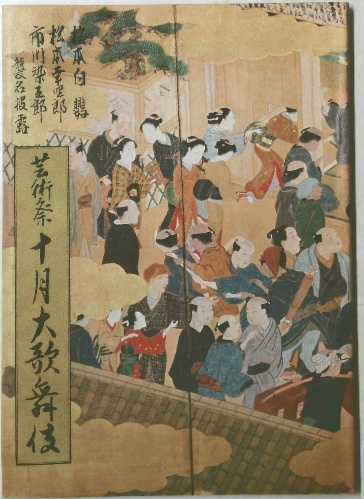 松本白鸚
松本幸四郎
市川染五郎
襲名披露
芸術祭十月大歌舞伎